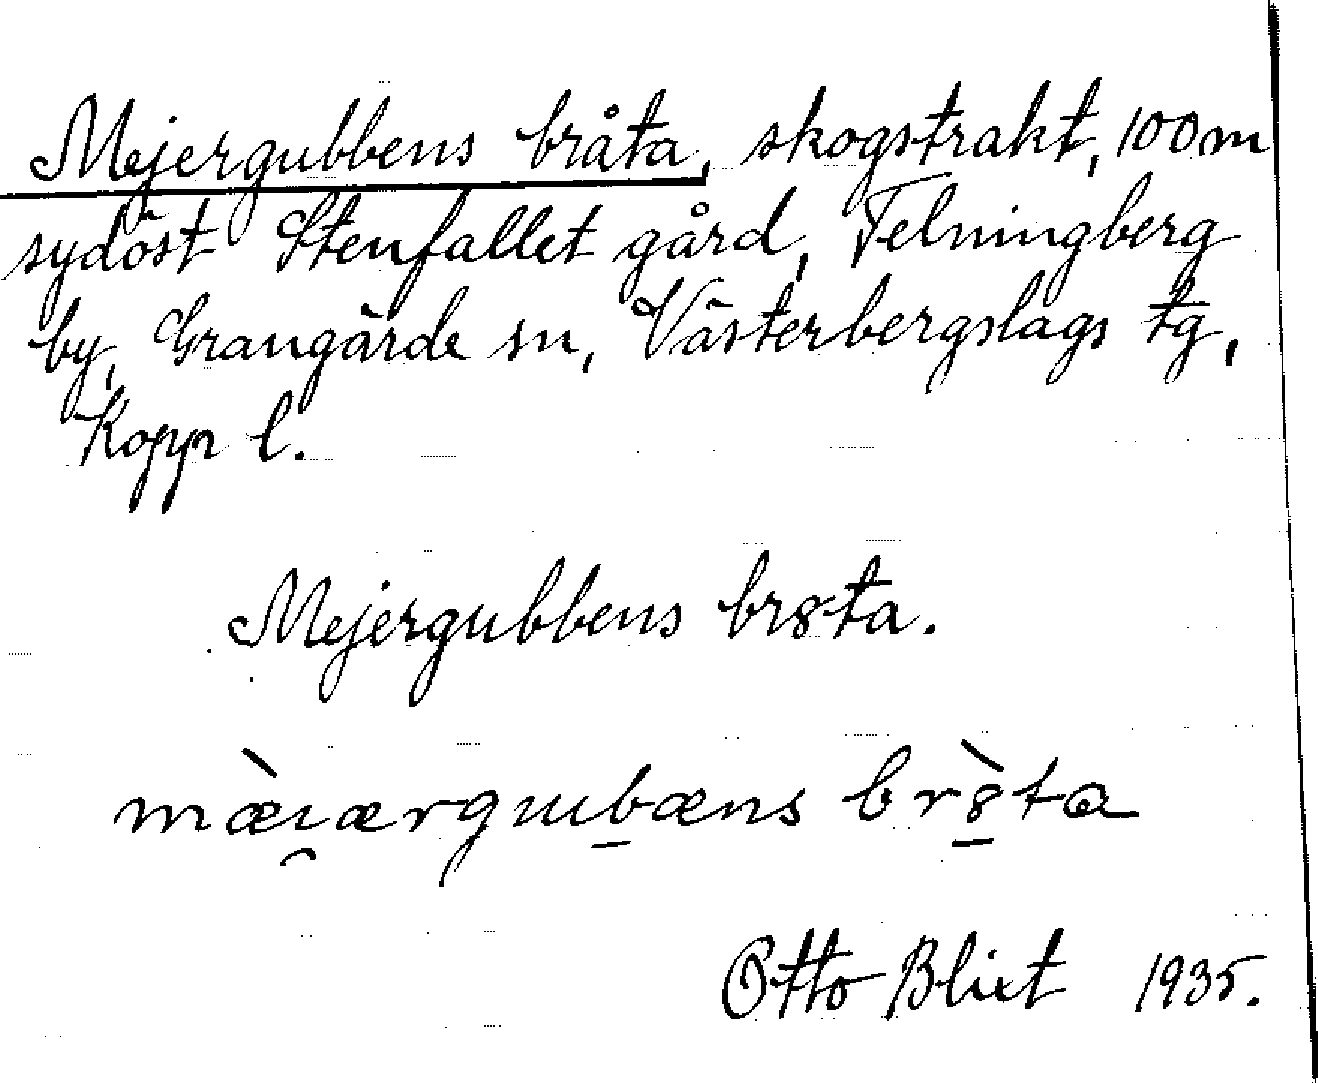 Mejergubbens bråta, skogstrakt, 100 m
sydöst Stenfallet gård, Felningberg
by, Grangärde sn, Västerbergslags tg,
Kopp l.
Mejergubbens br8ta.
mæ̀ı̯ærgub̲æns br8̲̀ta
Otto Blixt 1935.